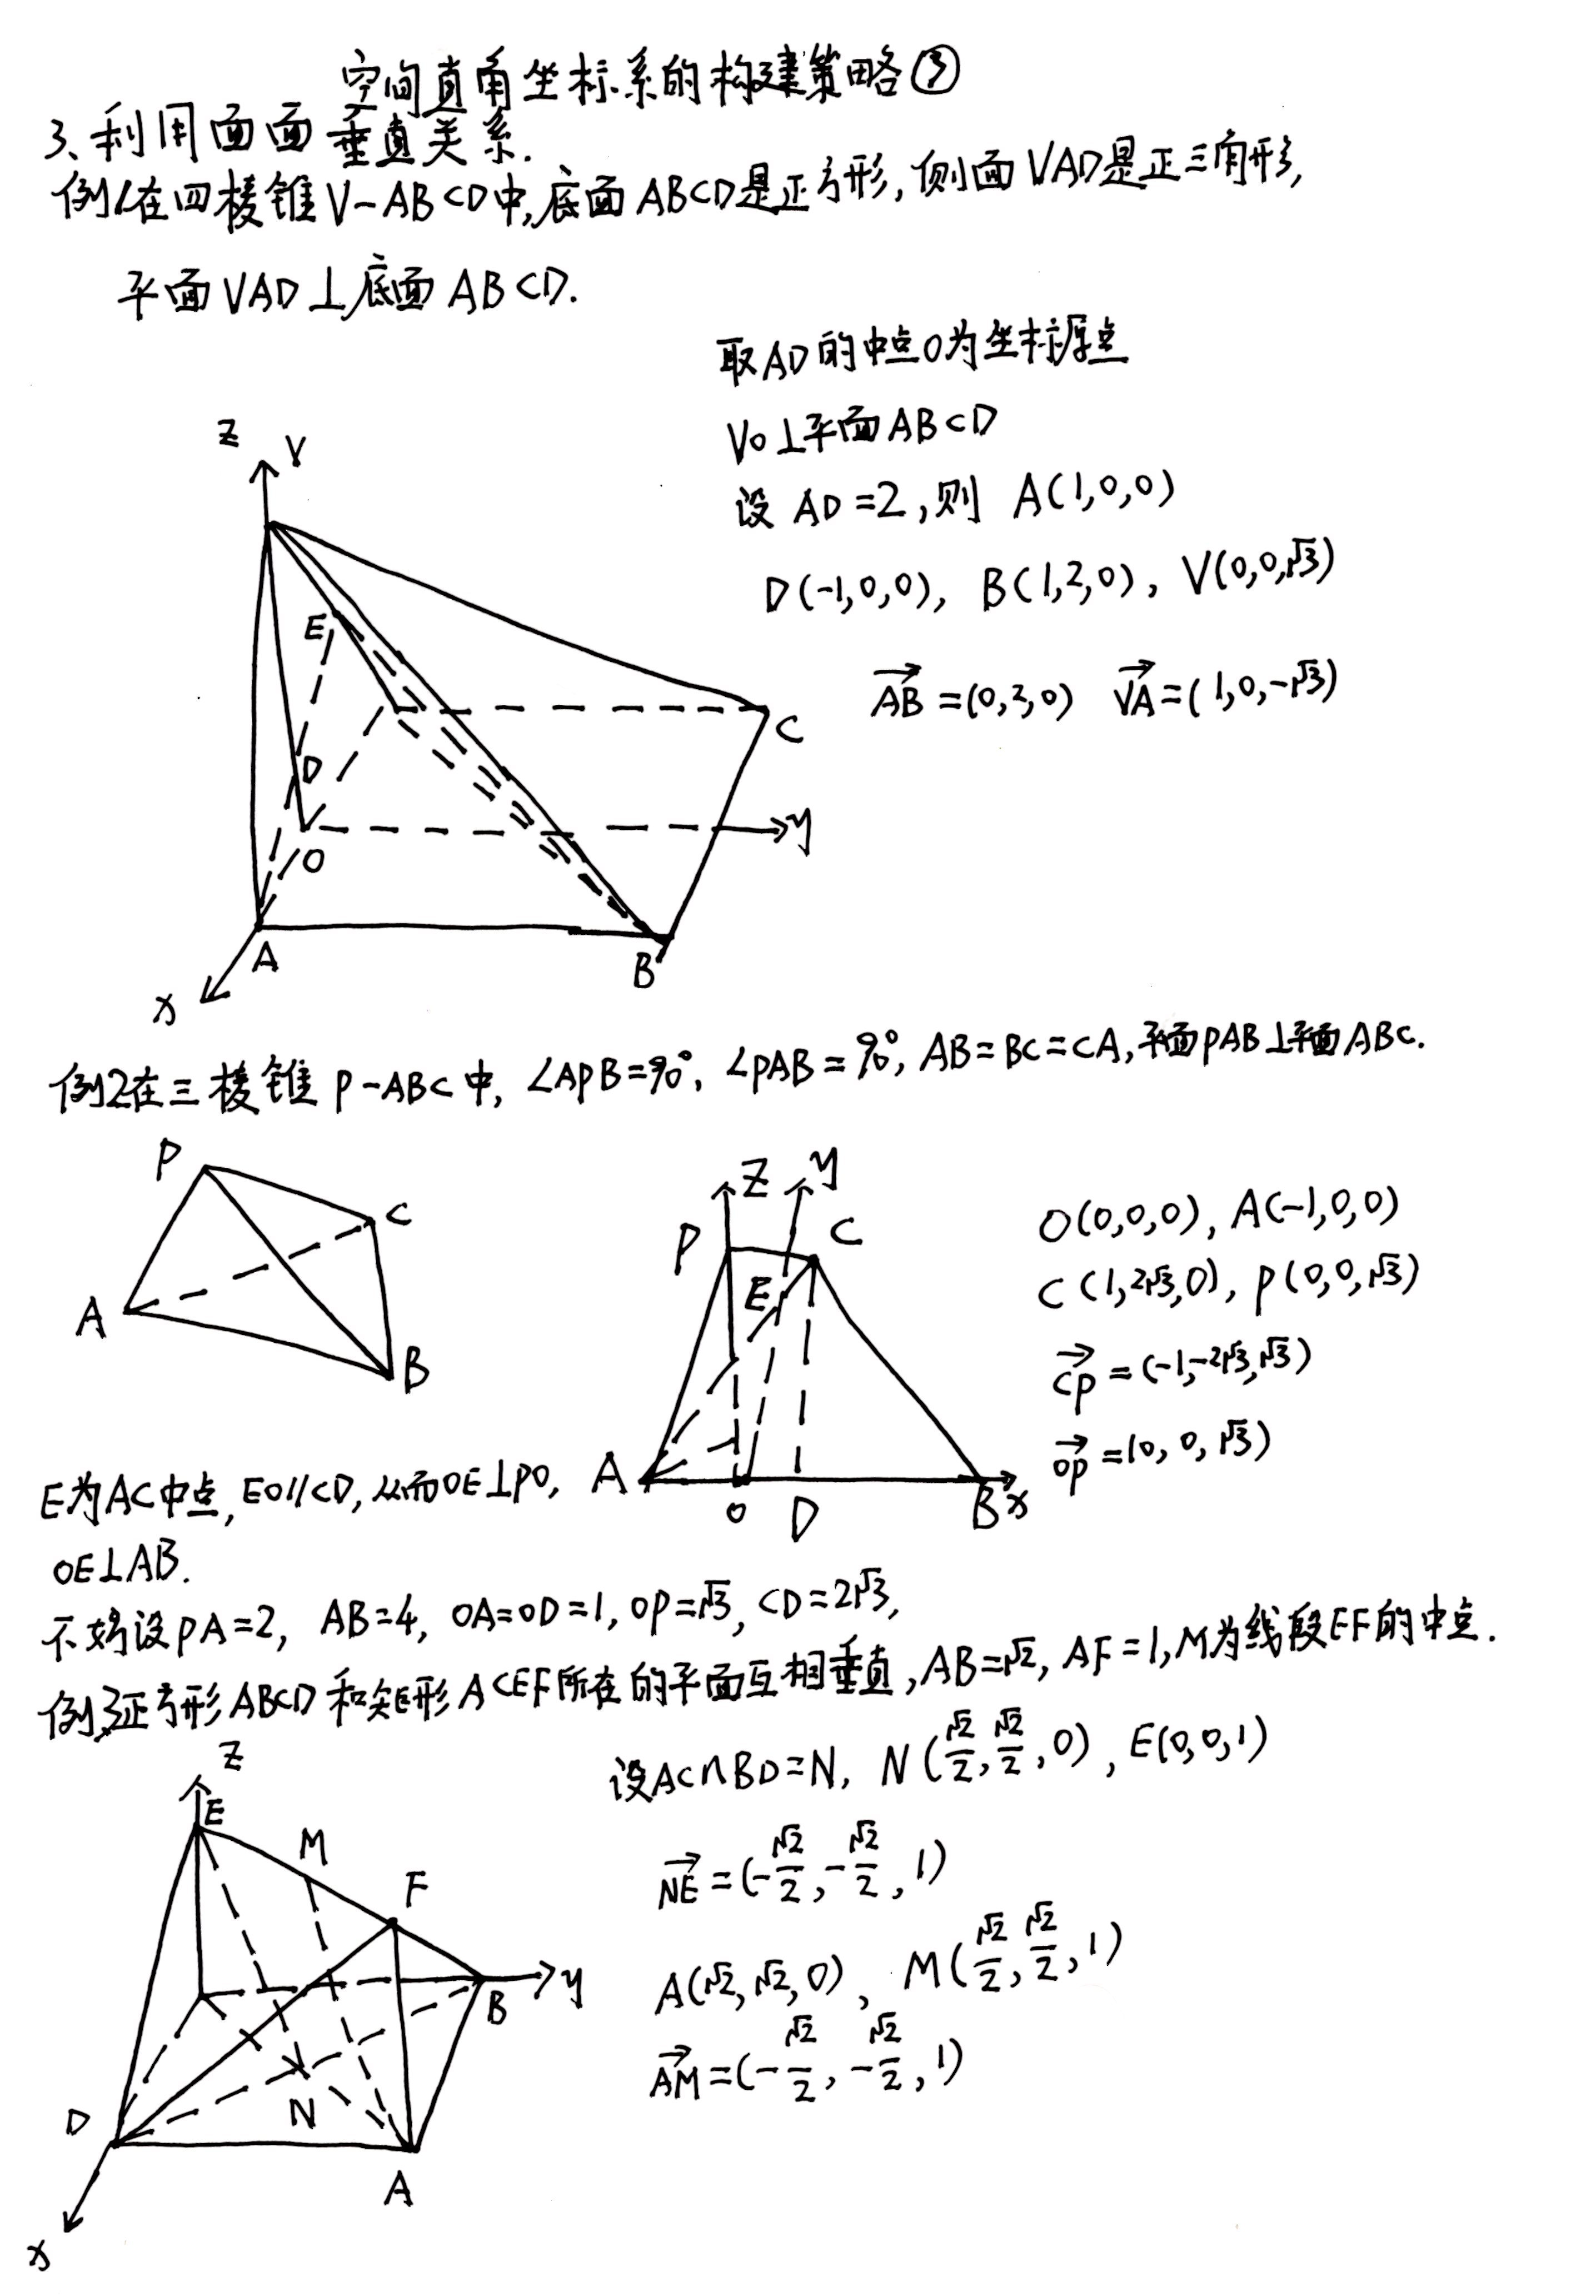 空间直角坐标系的构建策略③
3、利用面面垂直关系.
例1在四棱锥V-ABCD中,底面ABCD是正方形,侧面VAD是正三角形,
平面VAD⊥底面ABCD.
取AD的中点O为坐标原点
VO⊥平面ABCD
设AD=2,则 A(1,0,0)
D(-1,0,0), B(1,2,0), V(0,0,√3)
→AB=(0,2,0) →VA=(1,0,-√3)
z V
E
C
D
y
O
A
B
x
例2在三棱锥P-ABC中, ∠APB=90°, ∠PAB=90°, AB=BC=CA,平面PAB⊥平面ABC.
P
C
A
B
z y
P C
E
A
O D B x
O(0,0,0), A(-1,0,0)
C(1,2√3,0), P(0,0,√3)
→CP=(-1,-2√3,√3)
→OP=(0,0,√3)
E为AC中点,EO//CD,从而OE⊥PO,
OE⊥AB.
不妨设PA=2, AB=4, OA=OD=1, OP=√3, CD=2√3,
例3正方形ABCD和矩形ACEF所在的平面互相垂直,AB=√2, AF=1,M为线段EF的中点.
设AC∩BD=N, N(√2/2,√2/2,0), E(0,0,1)
→NE=(-√2/2,-√2/2,1)
A(√2,√2,0), M(√2/2,√2/2,1)
→AM=(-√2/2,-√2/2,1)
z
E
M
F
y
B
N
D
A
x